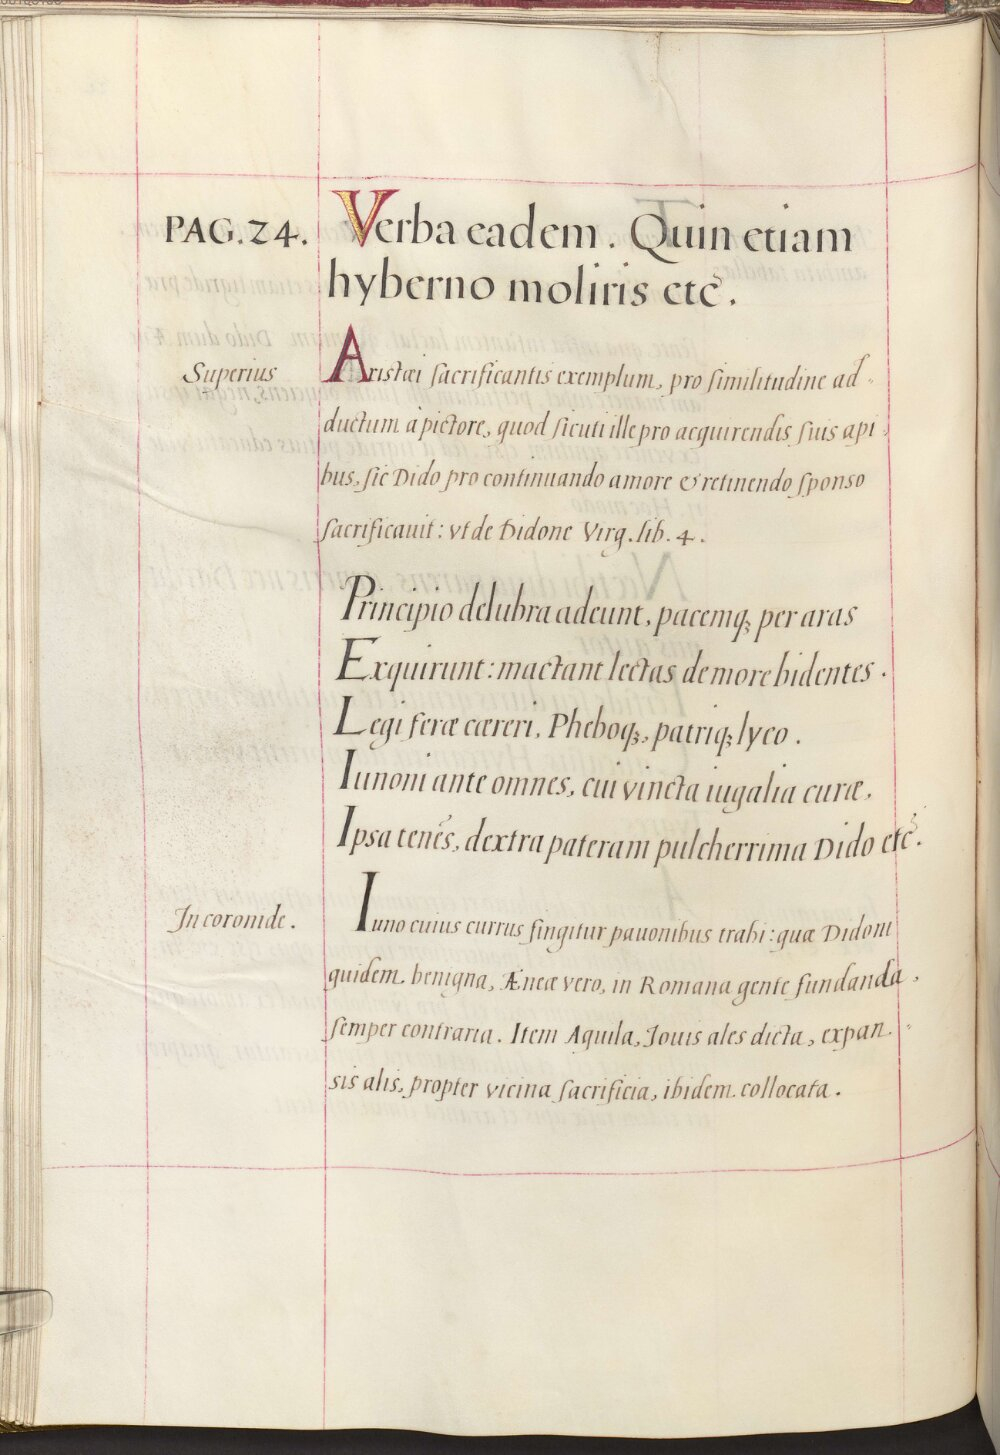 PAG. 24. Verba eadem. Quin etiam
hyberno moliris etc̃.
Superius
Aristæi sacrificantis exemplum, pro similitudine ad-
ductum à pictore, quod sicuti ille pro acquirendis suis api-
bus, sic Dido pro continuando amore & retinendo sponso
sacrificauit: vt de Didone Virg. lib. 4.
Principio delubra adeunt, pacemq; per aras
Exquirunt: mactant lectas de more bidentes.
Legiferæ cæreri, Pheboq;, patriq; lyco.
Iunoni ante omnes, cui vincta iugalia curæ,
Ipsa tenẽs, dextra pateram pulcherrima Dido etc̃.
In coronide.
Iuno cuius currus fingitur pauonibus trahi: quæ Didoni
quidem benigna, Æneæ vero, in Romana gente fundanda,
semper contraria. Item Aquila, Iouis ales dicta, expan-
sis alis, propter vicina sacrificia, ibidem collocata.